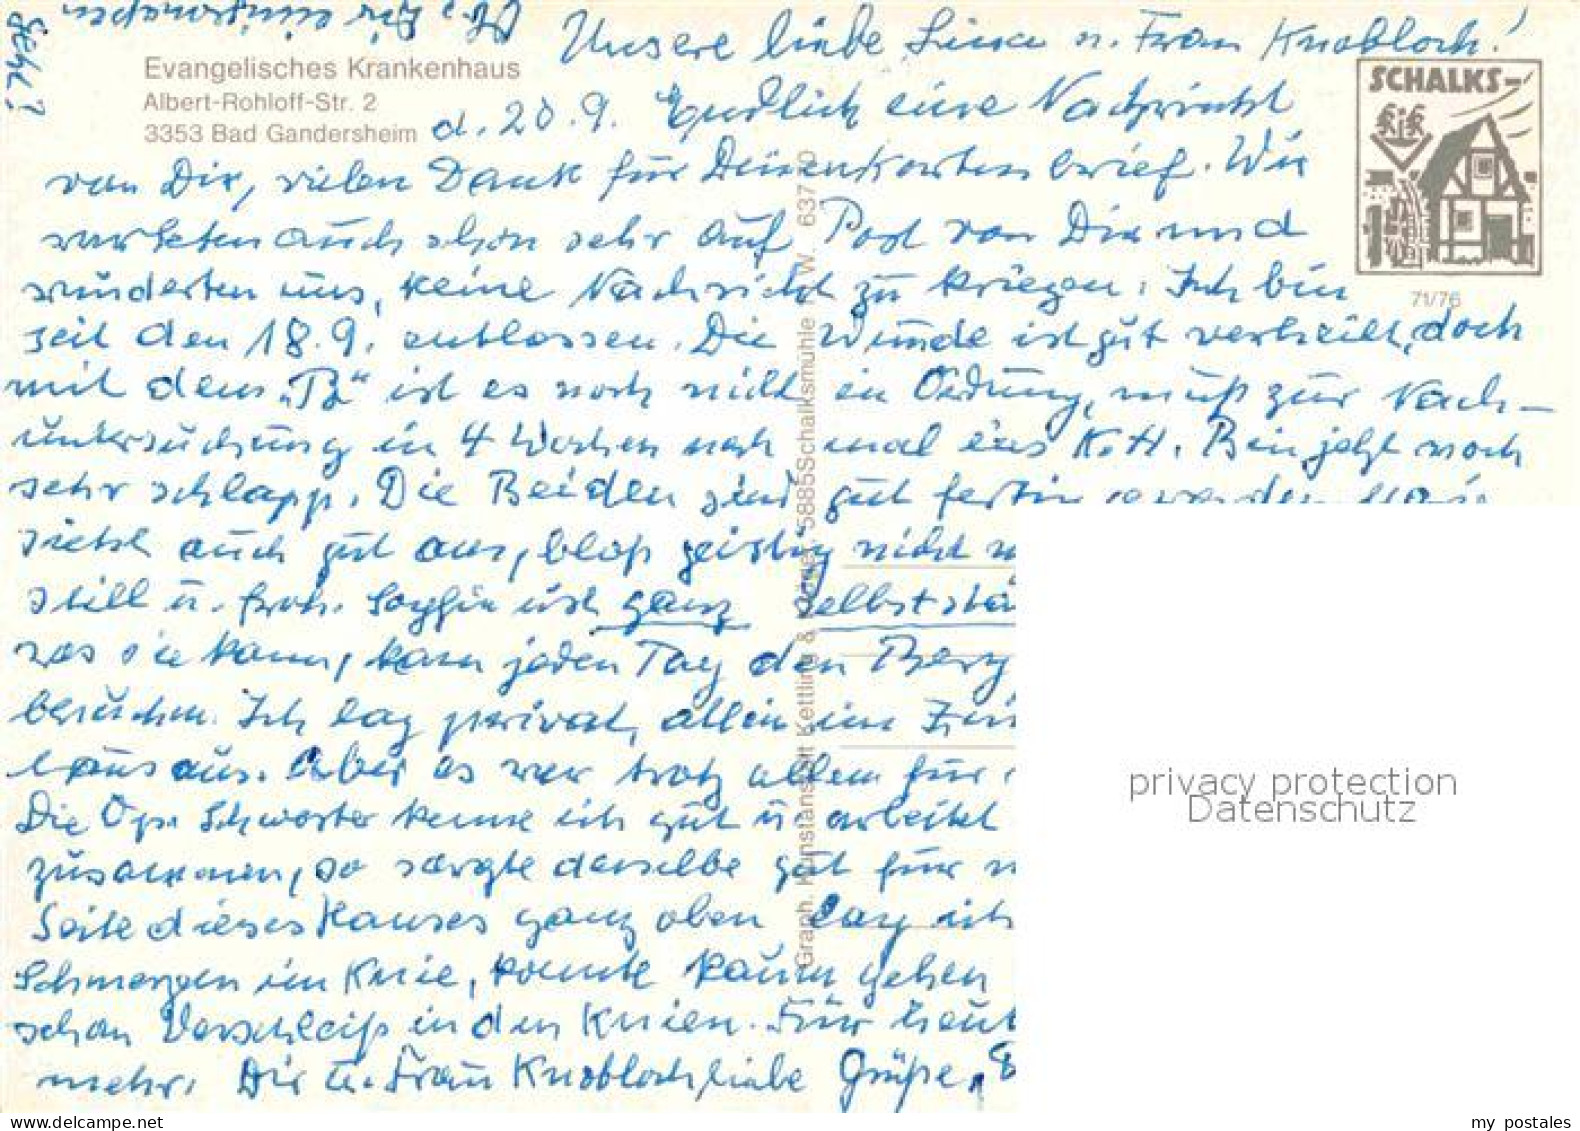 Evangelisches Krankenhaus
Albert-Rohloff-Str. 2
3353 Bad Gandersheim
SCHALKS-
71/76
Unsere liebe u. Frau Knobloch!
d. 20.9. Endlich eine Nachricht
von Dir, vielen Dank für Deinen Kartenbrief. Wir
warteten auch schon sehr auf Post von Dir und
wunderten uns, keine Nachricht zu kriegen. Ich bin
seit den 18.9. entlassen. Die Wunde ist gut verheilt, doch
mit dem ist es noch nicht in Ordnung, muß zur Nach-
untersuchung in 4 Wochen noch mal ins K.H. Bin jetzt noch
sehr schlapp. Die Beiden sind gut fertig geworden
sieht auch gut aus, bloß geistig nicht
still u. froh. ist ganz selbststä
was sie kann, kam jeden Tag den Berg
besuchen. Ich lag privat, allein im
aus. Aber es war trotz allem für
Die Op. Schwester kenne ich gut u. arbeitet
zusammen, so sorgte dieselbe gut für
Seite dieses Hauses ganz oben lag ich
Schmerzen im Knie, konnte kaum gehen
schon Verschleiß in den Knien. Für heut
mehr. Dir u. Frau Knobloch liebe Grüße,
Graph. Kunstanstalt Kettling & Krüger, 5885 Schalksmühle W. 637
privacy protection
Datenschutz
my postales